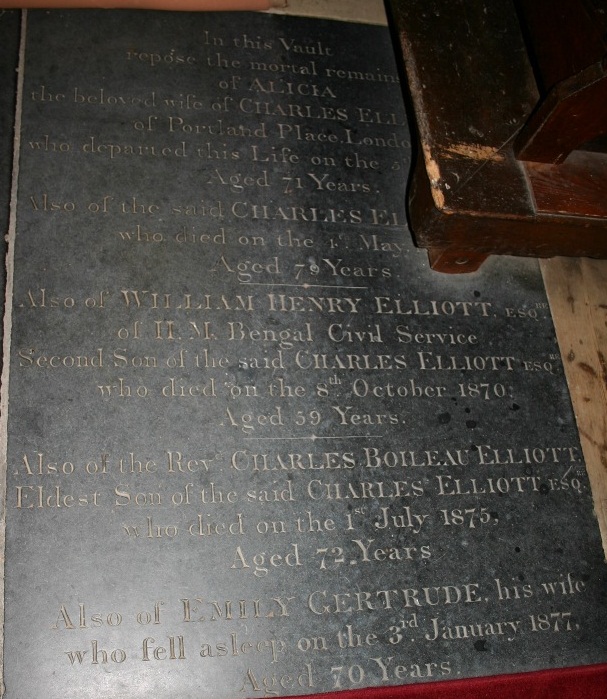 In this Vault
repose the mortal remains
of ALICIA
the beloved wife of CHARLES ELL
of Portland Place, Londo
who departed this Life on the
Aged 71 Years.
Also of the said CHARLES EL
who died on the 1st May,
Aged 79 Years.
Also of WILLIAM HENRY ELLIOTT, ESQRE
of H. M. Bengal Civil Service
Second Son of the said CHARLES ELLIOTT ESQRE
who died on the 8th October 1870,
Aged 59 Years.
Also of the Revd CHARLES BOILEAU ELLIOTT,
Eldest Son of the said CHARLES ELLIOTT, ESQRE
who died on the 1st July 1875,
Aged 72, Years
Also of EMILY GERTRUDE, his wife
who fell asleep on the 3rd January 1877,
Aged 70 Years.